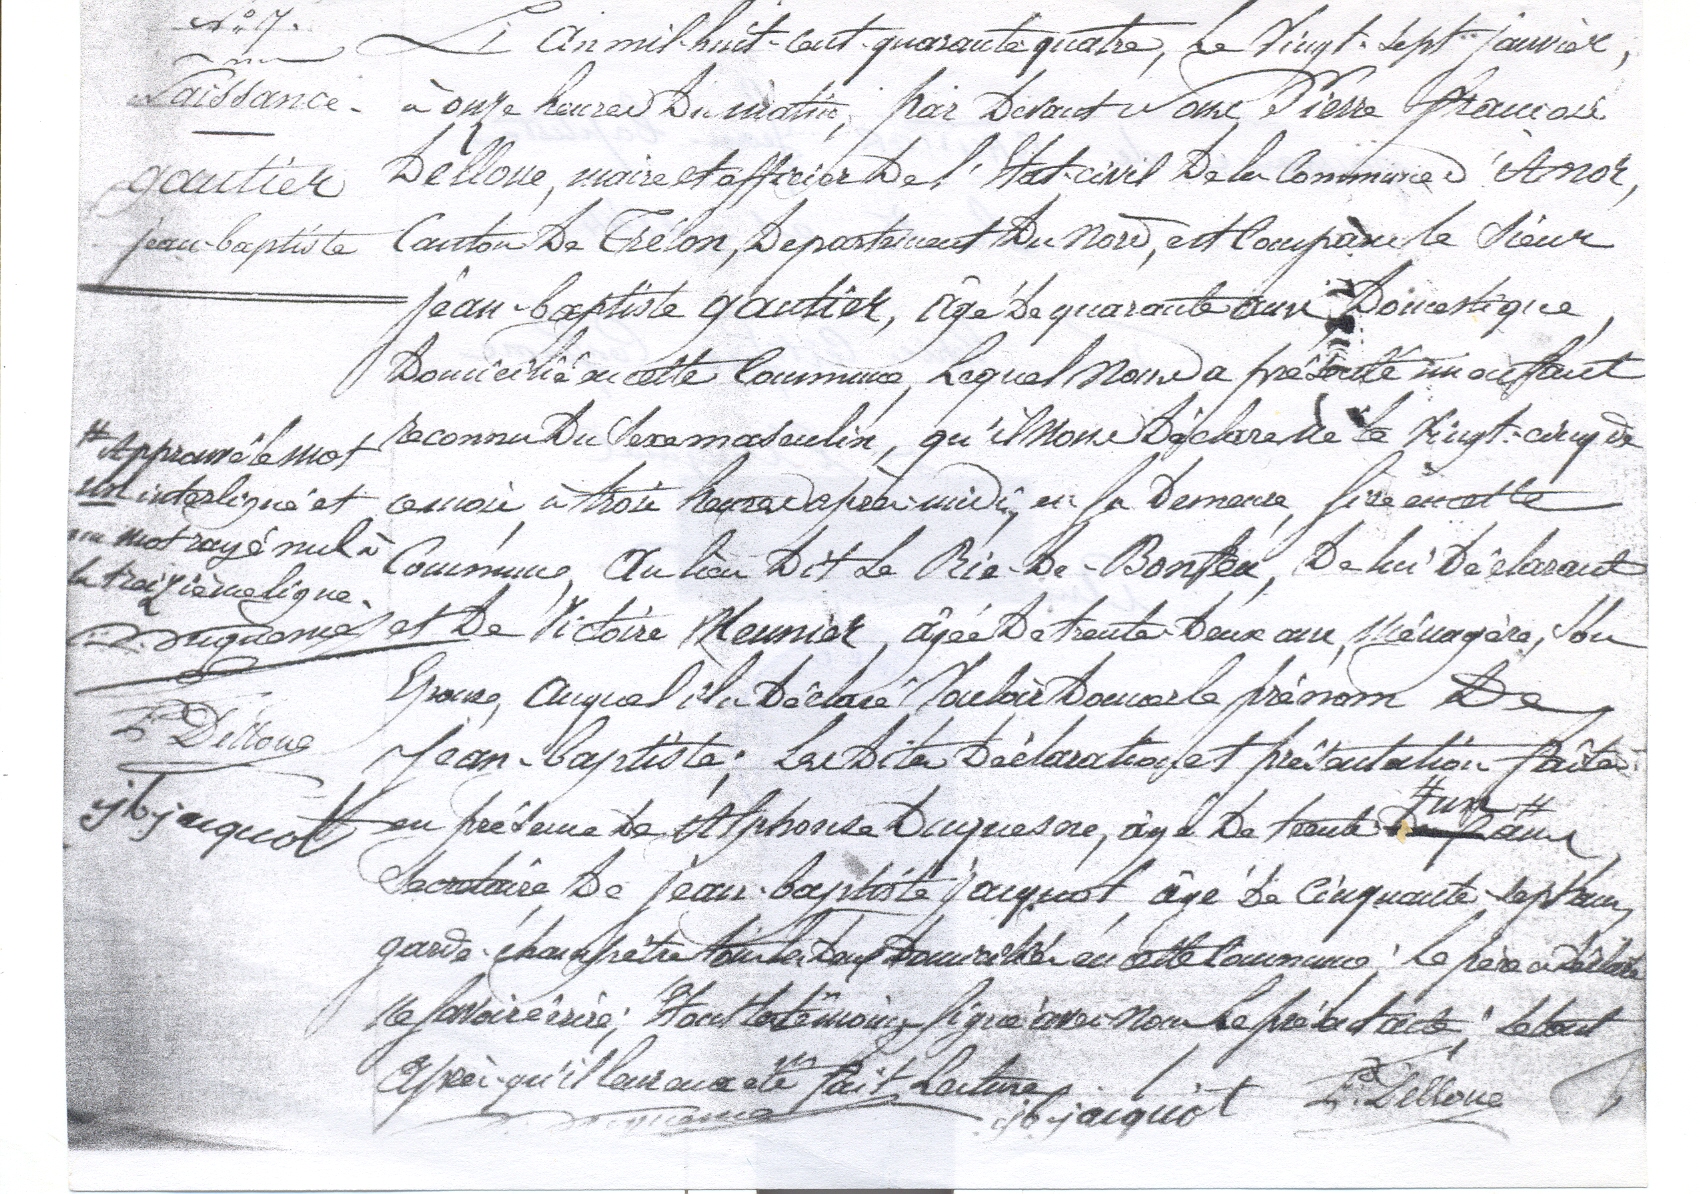 N° 7.
Naissance.
gautier
jean-baptiste
L'an mil-huit-cent-quarante quatre, Le Vingt-sept janvier,
à onze heures Du matin, par Devant Nous Pierre François
Delloue, maire et officier De l'Etat-civil De la Commune d'Anor,
Canton De Trélon, Département Du Nord, est Comparu le Sieur
jean-baptiste gautier, âgé De quarante ans Domestique,
Domicilié en cette Commune, Lequel Nous a présenté un enfant
reconnu Du Sexe masculin, qu'il Nous Déclare né Le Vingt-cinq de
ce mois à trois heures après-midi, en sa Demeure, sise en cette
Commune, au lieu Dit Le Rie-De-Bonfeu, De lui Déclarant
et De Victoire Meunier, âgée De trente-Deux ans, Ménagère, Son
Epouse, auquel il a Déclaré Vouloir Donner le prénom De
Jean-baptiste; Les Dites Déclaration et présentation faites
#un#
en présence De Alphonse Duquesne, âgé De trente ans
Secrétaire De jean-baptiste jacquot âgé De Cinquante-sept ans,
garde-champêtre tous les Deux Domiciliés en cette Commune; Le père a Déclaré
Ne savoir écrire; Et ont les témoins signé avec Nous Le présent acte; Le tout
Après-qu'il leur en a été fait Lecture.
# Approuvé le mot
un interligné et
un mot rayé nul à
la treizième ligne.
Duquesne
P. Delloue
jb jacquot
Duquesne
jb jacquot
P. Delloue